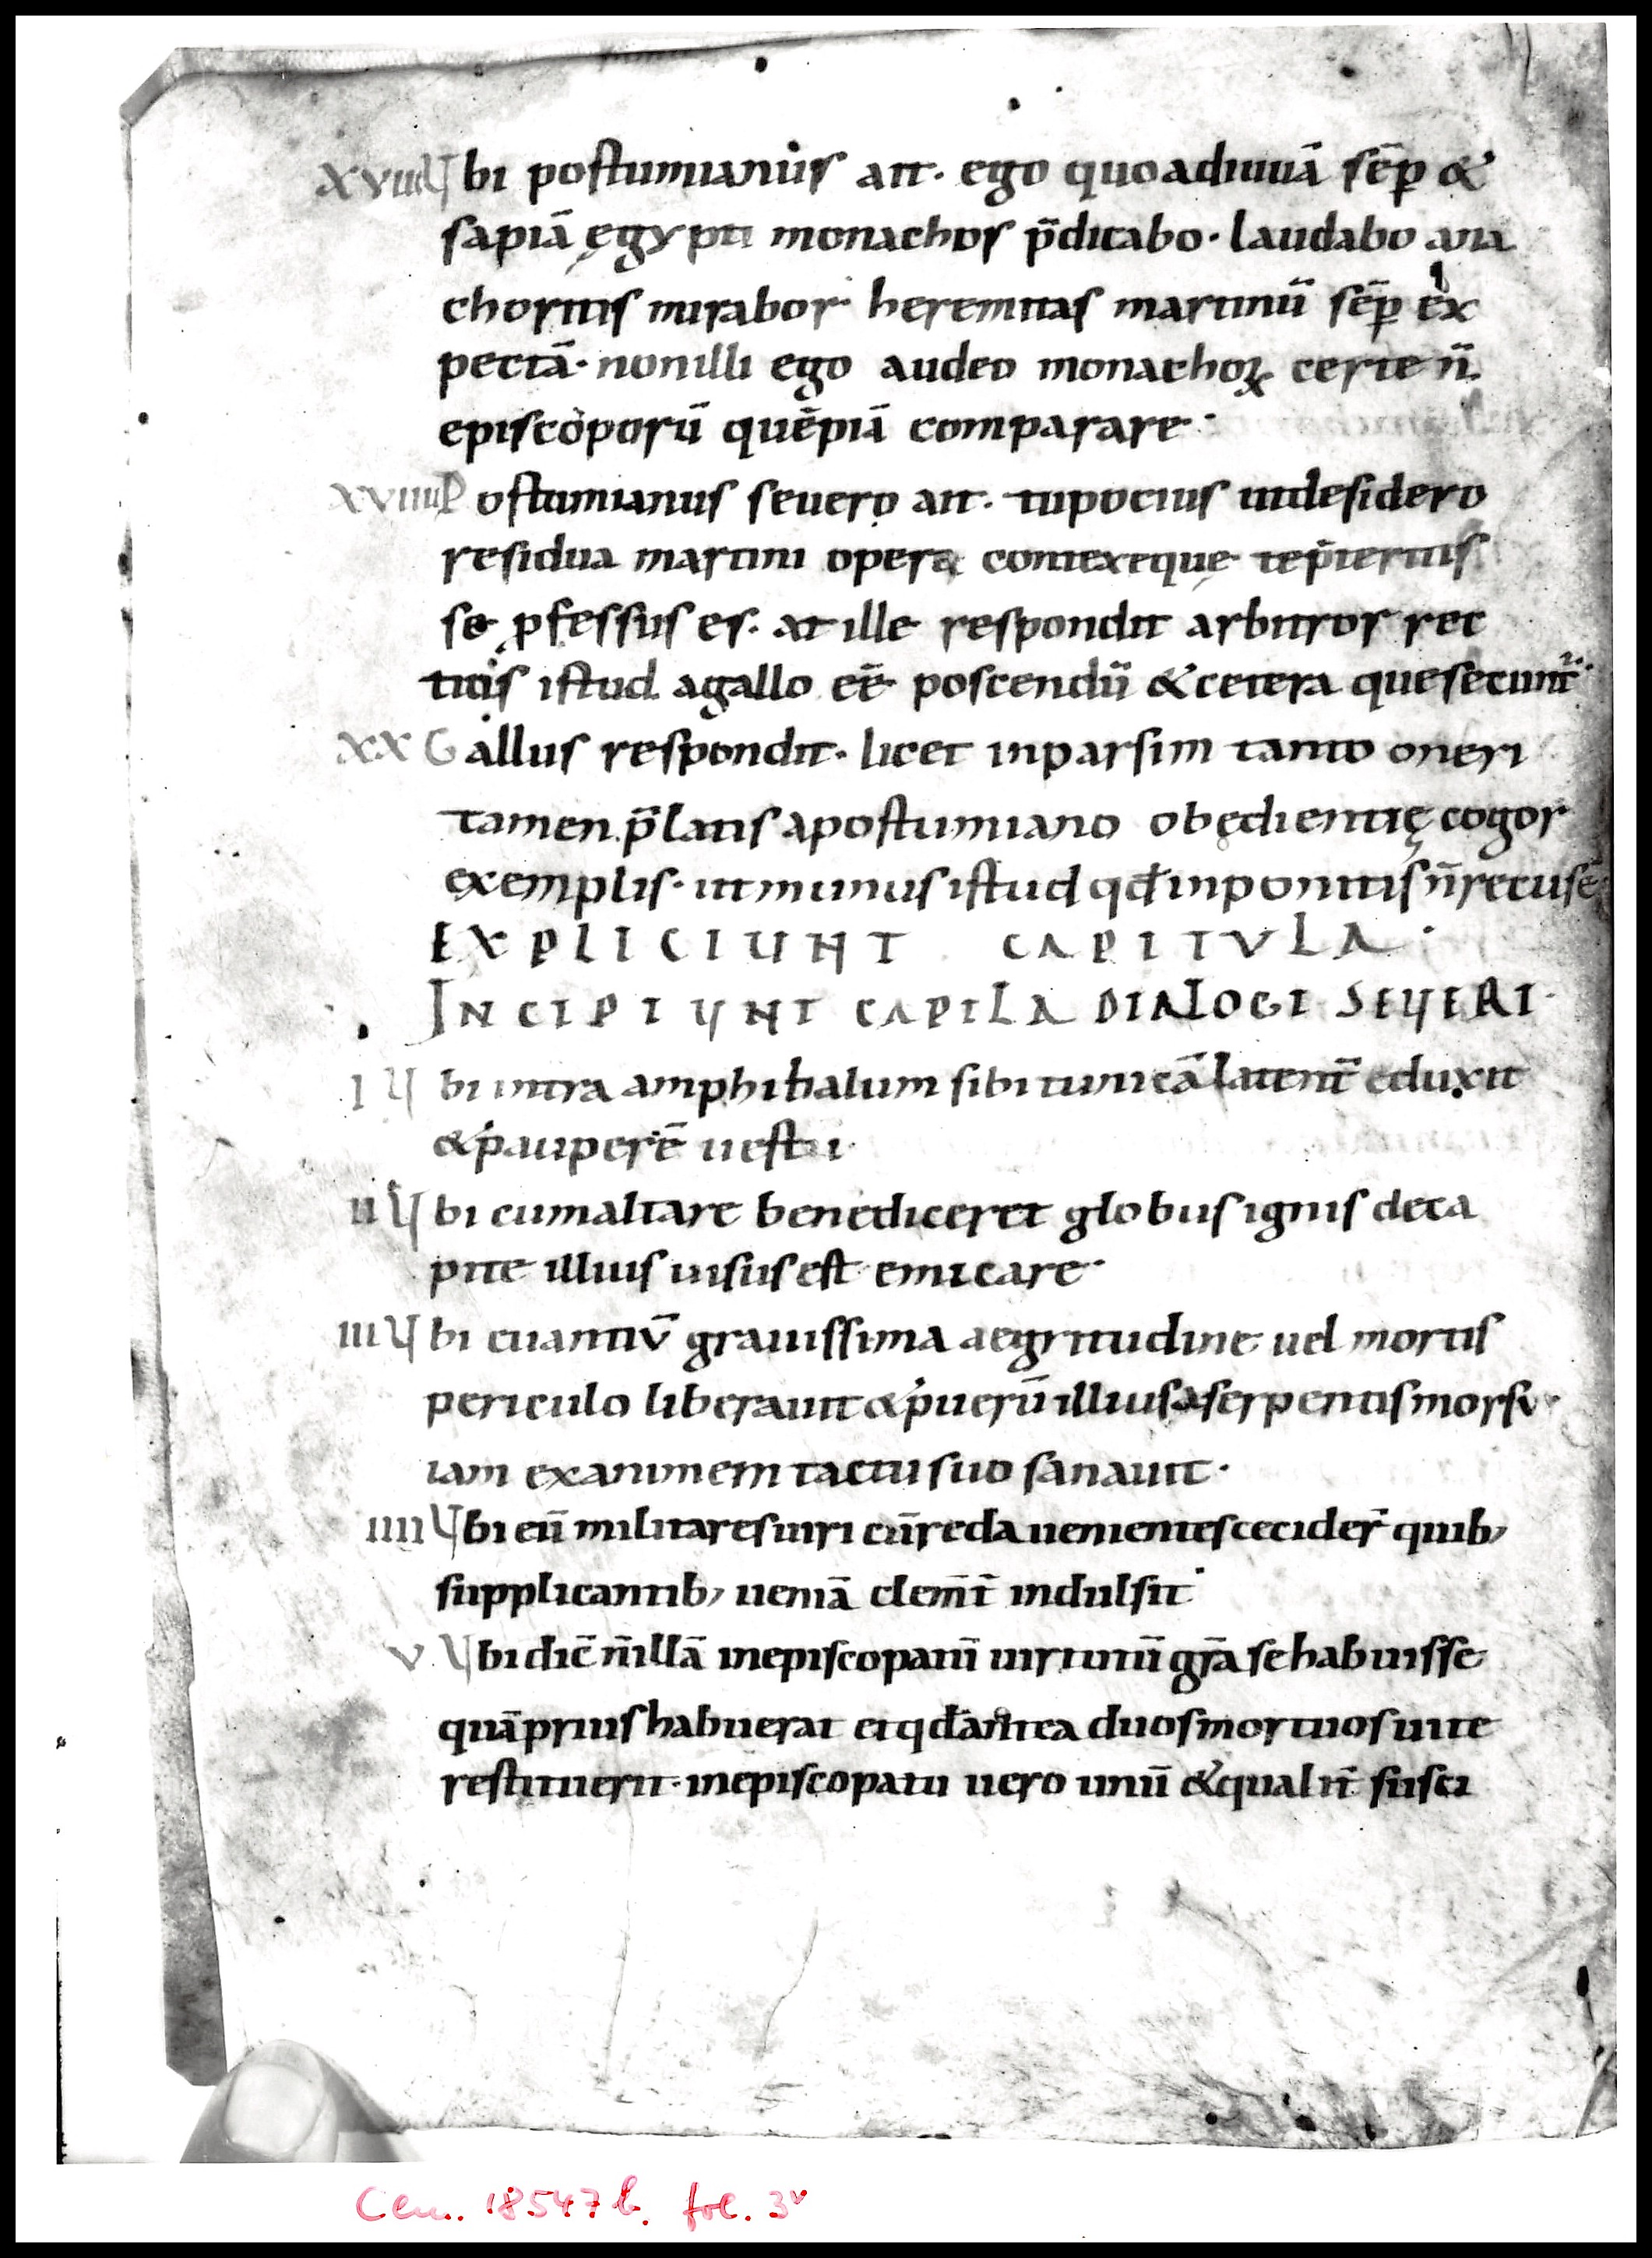 xviii Ubi postumianus ait· ego quoadiuuā sēp &
sapiā ęgypti monachos p̄dicabo· laudabo ana
choritis mirabor· heremitas martinū sēp ex
pectā· nonilli ego audeo monachoꝝ certe n̄
episcoporū quēpiā comparare·
xviiii Postumianus seuero ait· tupocius utdesidero
residua martini opera contexeque
se ꝓfessus es· at ille respondit arbitror rec
tius istud agallo eē poscendū & cetera quesecunt̄
xx Gallus respondit· licet inparsim tanto oneri
tamen p̄latis apostumiano obędientię cogor
exemplis· utmunus istud qđ inponitis n̄ recusē
EXPLICIUNT CAPITVLA·
INCIPIUNT CAPILA DIALOGI SEUERI·
I Ubi intra amphibalum sibi tunicā latent̄ eduxit
& pauperē uestiu
II Ubi cumaltare benediceret globus ignis deca
pite illius uisus est emicare·
III Ubi euantiv̄ grauissima aegritudine uel mortis
periculo liberauit & puerū illius a serpentis morsv
iam exanimem tactu suo sanauit·
IIII Ubi eū militares uiri cū reda uenientes cecider̄ quib;
supplicantib; ueniā clem̄t indulsit·
V Ubi dic̄ n̄ illā inepiscopatū uirtutū gr̄a se habuisse
quā prius habuerat etqđ antea duos mortuos uite
restituerit· inepiscopatu uero unū & qualit̄ susci
Clm. 18547b. fol. 3v